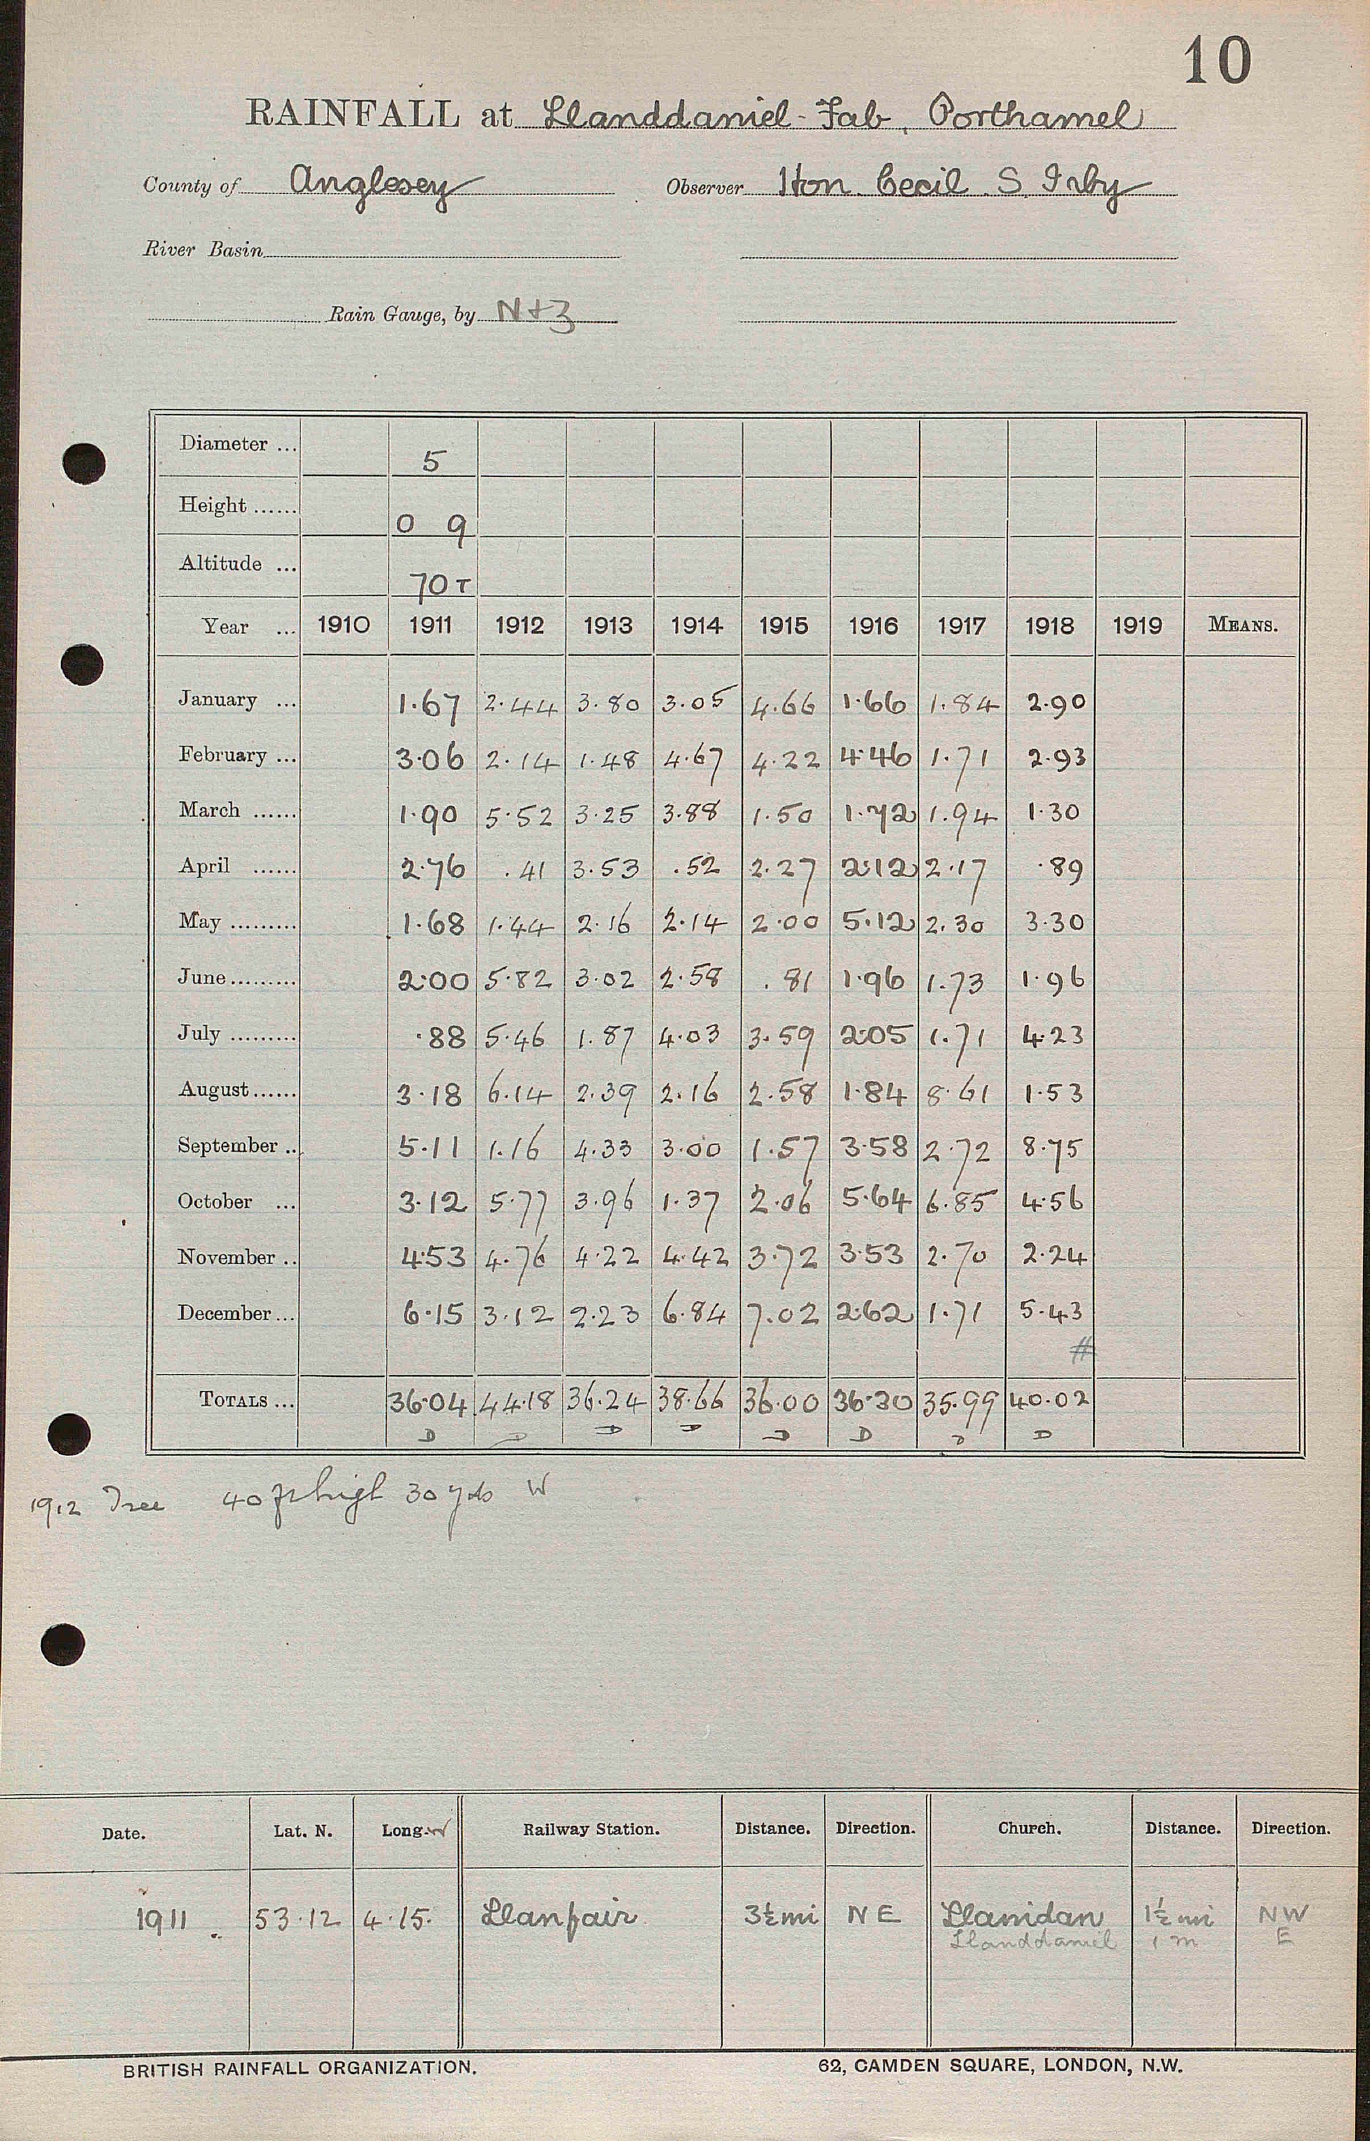 10
RAINFALL at Llanddaniel-Fab, Porthamel
County of Anglesey Observer Hon. Cecil S Irby
River Basin
Rain Gauge, by N+Z
Diameter ... 5
Height ...... 0 9
Altitude ... 70 T
Year ... 1910 1911 1912 1913 1914 1915 1916 1917 1918 1919 MEANS.
January ... 1.67 2.44 3.80 3.05 4.66 1.66 1.84 2.90
February ... 3.06 2.14 1.48 4.67 4.22 4.46 1.71 2.93
March ...... 1.90 5.52 3.25 3.88 1.50 1.72 1.94 1.30
April ...... 2.76 .41 3.53 .52 2.27 2.12 2.17 .89
May ......... 1.68 1.44 2.16 2.14 2.00 5.12 2.30 3.30
June ......... 2.00 5.82 3.02 2.58 .81 1.96 1.73 1.96
July ......... .88 5.46 1.87 4.03 3.59 2.05 1.71 4.23
August ...... 3.18 6.14 2.39 2.16 2.58 1.84 8.61 1.53
September .. 5.11 1.16 4.33 3.00 1.57 3.58 2.72 8.75
October ... 3.12 5.77 3.96 1.37 2.06 5.64 6.85 4.56
November .. 4.53 4.76 4.22 4.42 3.72 3.53 2.70 2.24
December ... 6.15 3.12 2.23 6.84 7.02 2.62 1.71 5.43
#
TOTALS ... 36.04 44.18 36.24 38.66 36.00 36.30 35.99 40.02
D D D D D D D D
1912 Tree 40 ft high 30 yds W
Date. Lat. N. Long. W Railway Station. Distance. Direction. Church. Distance. Direction.
1911 53.12 4.15. Llanfair 3½ mi N E Llanidan 1½ mi NW
Llanddaniel 1 m E
BRITISH RAINFALL ORGANIZATION. 62, CAMDEN SQUARE, LONDON, N.W.